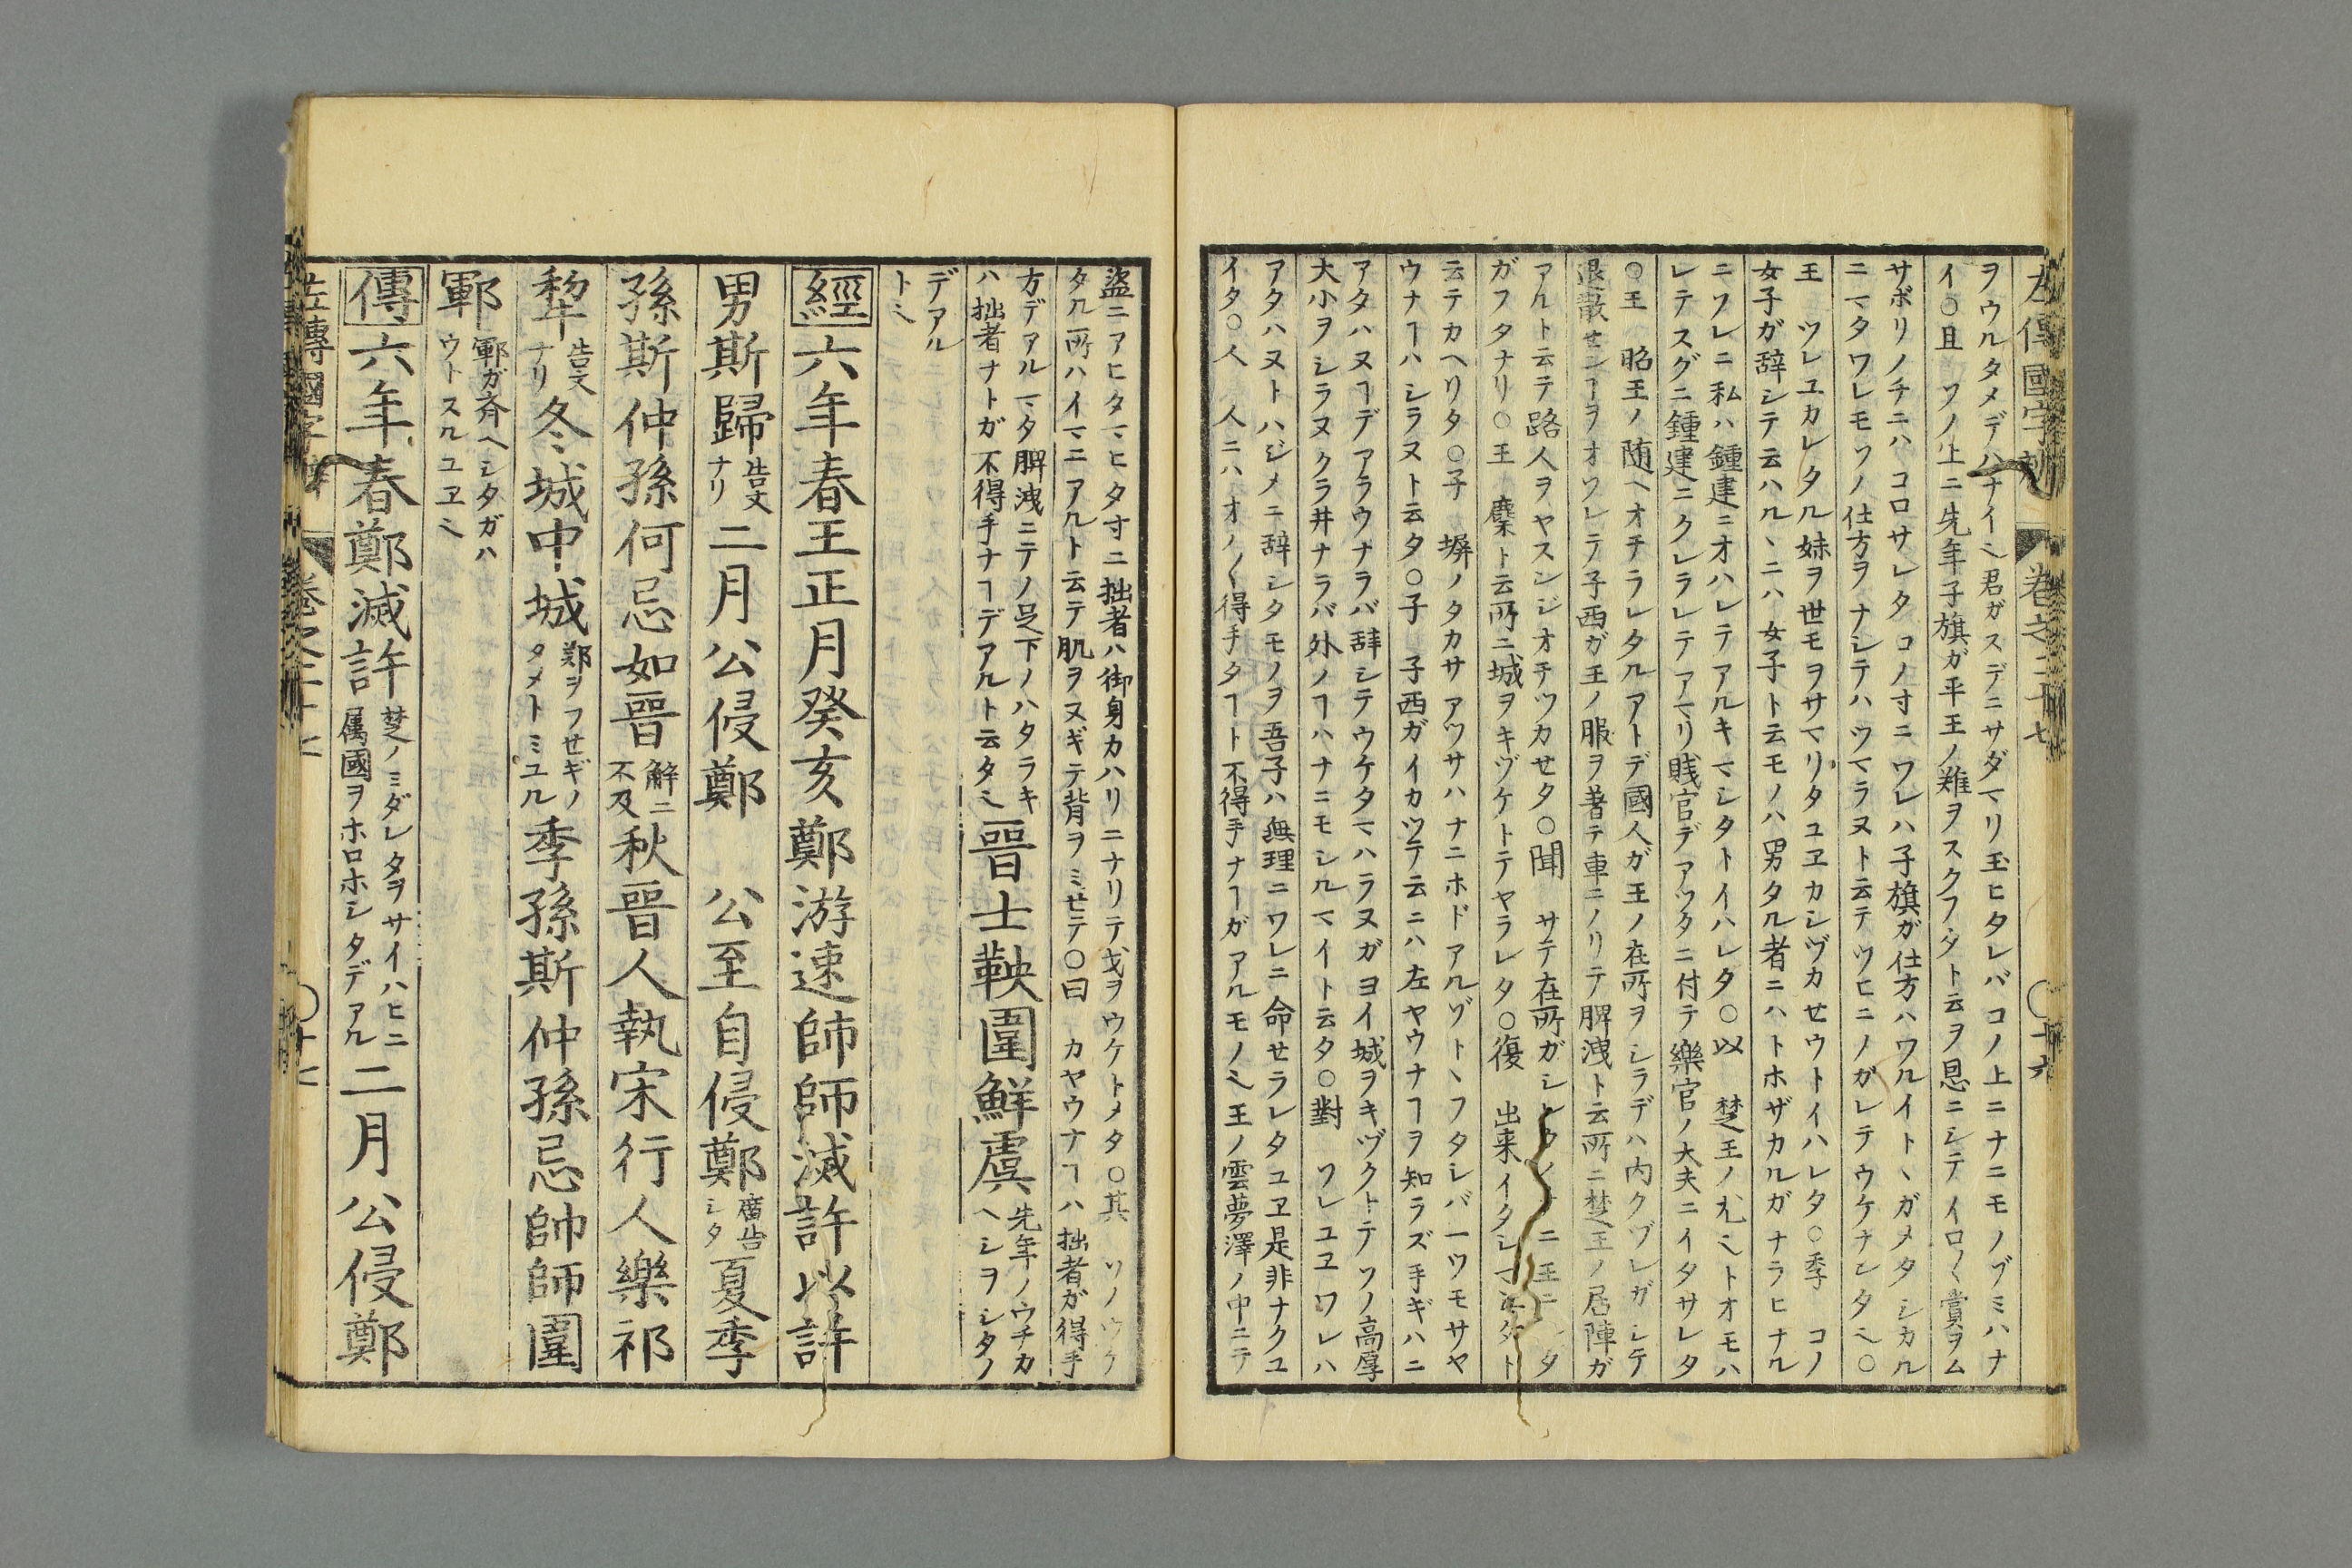 左傳國字 卷之二十七 十六
ヲウルタメデハナイ〻君ガスデニサダマリ玉ヒタレバコノ上ニナニモノゾミハナ
イ○且 ソノ上ニ先年子旗ガ平王ノ難ヲスクフタト云ヲ恩ニシテイロ〱賞ヲム
サボリノチニハコロサレタコノ寸ニワレハ子旗ガ仕方ハワルイトヽガメタシカル
ニマタワレモソノ仕方ヲナシテハツマラヌト云テツヒニノガレテウケナンタ〻○
王 ツレユカレタル妹ヲ世モヲサマリタユヱカシヅカせウトイハレタ○季 コノ
女子ガ辞シテ云ハルヽニハ女子ト云モノハ男タル者ニハトホザカルガナラヒナル
ニソレニ私ハ鍾建ニオハレテアルキマシタトイハレタ○以 楚王ノ尤〻トオモハ
レテスグニ鍾建ニクレラレテアマリ賎官デアツタニ付テ樂官ノ大夫ニイタサレタ
○王 昭王ノ随ヘオチラレタルアトデ國人ガ王ノ在所ヲシラデハ内クヅレガシテ
退散せンヿヲオソレテ子西ガ王ノ服ヲ著テ車ニノリテ脾洩ト云所ニ楚王ノ居陣ガ
アルト云テ路人ヲヤスンジオチツカせタ○聞 サテ在所ガシ ニ王ニ タ
ガフタナリ○王 麇ト云所ニ城ヲキヅケトテヤラレタ○復 出来イタシマシタト
云テカヘリタ○子 塀ノタカサアツサハナニホドアルゾトヽフタレバ一ツモサヤ
ウナヿハシラヌト云タ○子 子西ガイカツテ云ニハ左ヤウナヿヲ知ラズ手ギハニ
アタハヌヿデアラウナラバ辞シテウケタマハラヌガヨイ城ヲキヅクトテソノ高厚
大小ヲシラヌクラ井ナラバ外ノヿハナニモシルマイト云タ○對 ソレユヱワレハ
アタハヌトハジメニ辞シタモノヲ吾子ハ無理ニワレニ命せラレタユヱ是非ナクユ
イタ○人 人ニハオノ〱得手タヿト不得手ナヿガアルモノ〻王ノ雲夢澤ノ中ニテ
盗ニアヒタマヒタ寸ニ拙者ハ御身カハリニナリテ戈ヲウケトメタ○其 ソノウケ
タル所ハイマニアルト云テ肌ヲヌギテ背ヲミせテ○曰 カヤウナヿハ拙者ガ得手
方デアルマタ脾洩ニテノ足下ノハタラキ
ハ拙者ナトガ不得手ナヿデアルト云タ〻
晉士鞅圍鮮虞
先年ノウチカ
ヘシヲシタノ
デアル
ト〻
經六年春王正月癸亥鄭游速帥師滅許以許
男斯歸
告文
ナリ
二月公侵鄭 公至自侵鄭
廣告
シタ
夏季
孫斯仲孫何忌如晉
解ニ
不及
秋晉人執宋行人樂祁
犂
告文
ナリ
冬城中城
鄭ヲフせギノ
タメトミユル
季孫斯仲孫忌帥師圍
鄆
鄆ガ斉ヘシタガハ
ウトスルユヱ〻
傳六年春鄭滅許
楚ノミダレタヲサイハヒニ
属國ヲホロホシタデアル
二月公侵鄭
左傳國字 卷之二十七 十七